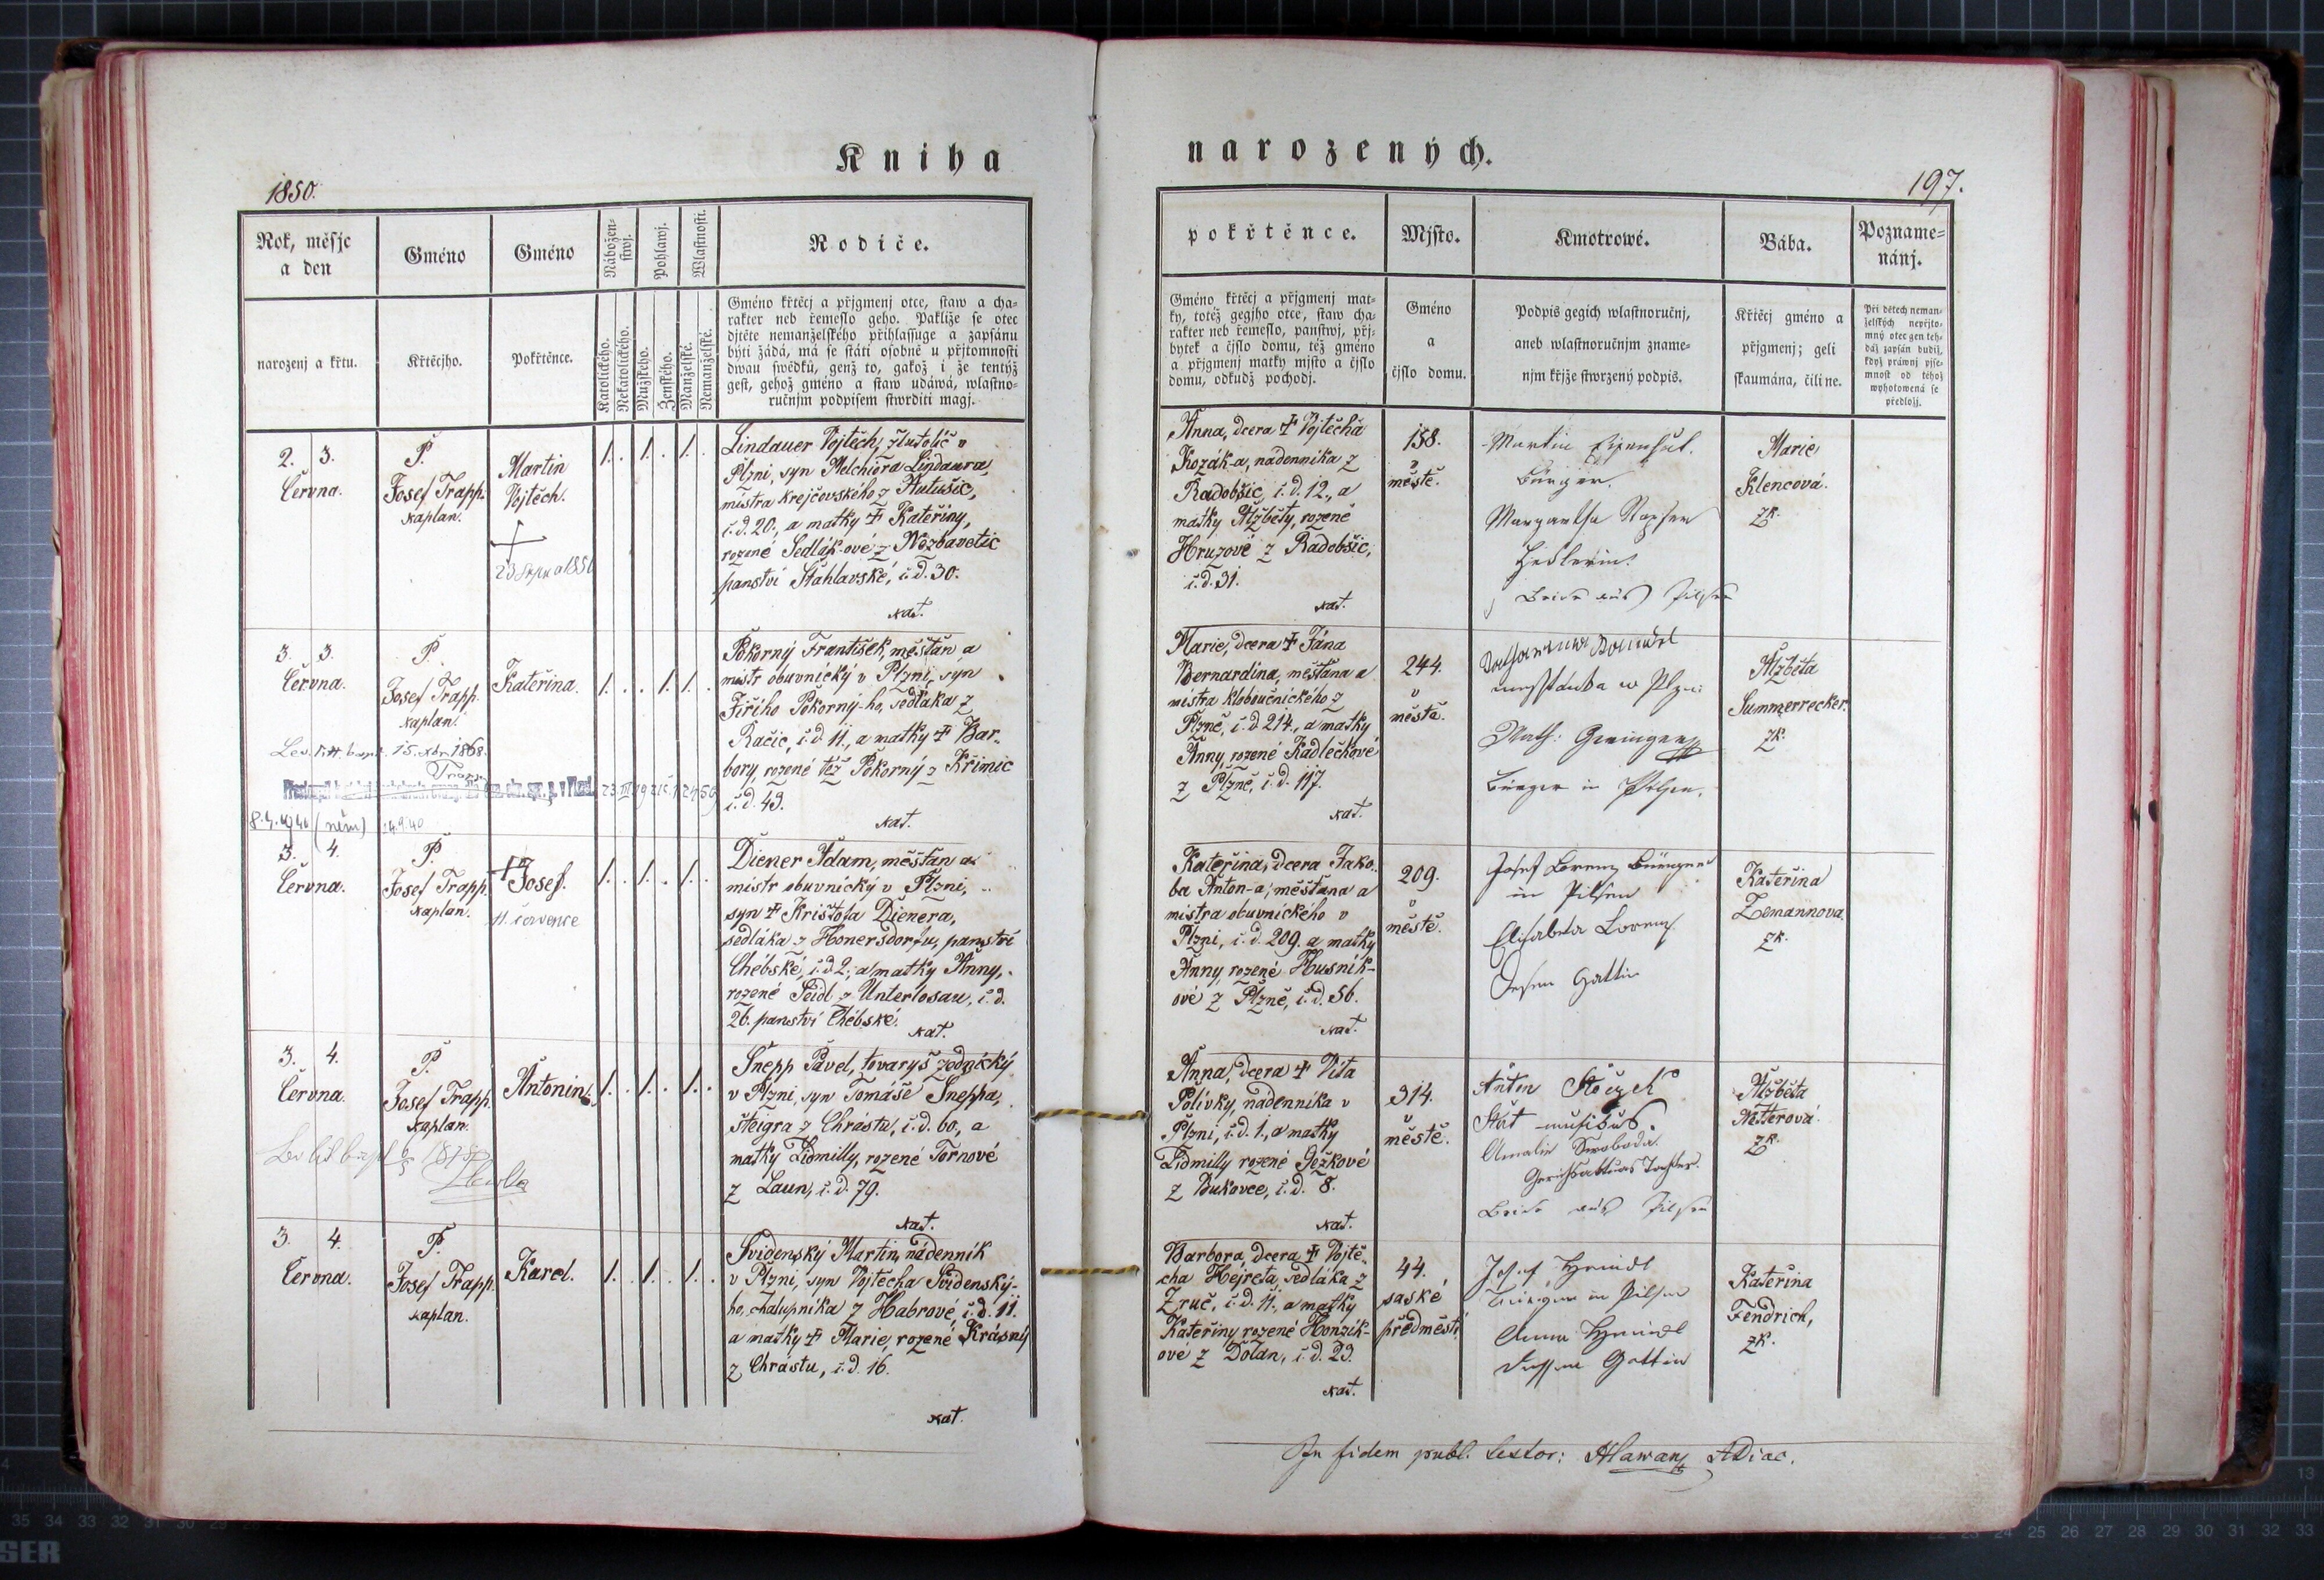 Kniha
narozených.
1850.
197.
Rok, měsjc
a den
narozenj a křtu.
Gméno
Křtěcjho.
Gméno
Pokřtěnce.
Nábožen-
stwj.
Pohlawj.
Wlastnosti.
Katolického.
Nekatolického.
Mužského.
Ženského.
Manželské.
Nemanželské.
Rodiče.
Gméno křtěcj a přjgmenj otce, staw a cha-
rakter neb řemeslo geho. Pakliže se otec
djtěte nemanželského přihlassuge a zapsánu
býti žádá, má se státi osobně u přjtomnosti
dwau swědků, genž to, gakož i že tentýž
gest, gehož gméno a staw udáwá, wlastno-
ručnjm podpisem stwrditi magj.
pokřtěnce.
Gméno křtěcj a přjgmenj mat-
ky, totéž gegjho otce, staw cha-
rakter neb řemeslo, panstwj, přj-
bytek a čjslo domu, též gméno
a přjgmenj matky mjsto a čjslo
domu, odkudž pochodj.
Mjsto.
Gméno
a
čjslo domu.
Kmotrowé.
Podpis gegich wlastnoručnj,
aneb wlastnoručnjm zname-
njm křjže stwrzený podpis.
Bába.
Křtěcj gméno a
přjgmenj; geli
skaumána, čili ne.
Pozname-
nánj.
Při dětech neman-
želských nepřjto-
mný otec gen teh-
dáž zapsán budiž,
když práwnj pjse-
mnost od téhož
wyhotowená se
předložj.
2. 3.
Června.
P.
Josef Trapp.
kaplan.
Martin
Vojtěch.
1. . 1. . 1. .
Lindauer Vojtěch,
Plzni, syn Melchiora Lindaura,
mistra krejčovského z
č.d. 20., a matky † Kateřiny,
rozené Sedlák-ové z Nezbavetic
panství Štáhlavské, č.d. 30.
kat.
Anna, dcera † Vojtěcha
Kozák-a, nádenníka z
Radobšic, č.d. 12., a
matky Alžběty, rozené
Hruzové z Radobšic,
č.d. 31.
kat.
158.
v
městě.
Martin
Bürger.
Margaretha
Beide aus Pilsen
Marie
Klencová.
zk.
3. 3.
Června.
P.
Josef Trapp.
kaplan.
Kateřina.
1. . . 1. 1. .
Pokorný František, měšťan a
mistr obuvnický v Plzni, syn
Jiřího Pokorný-ho, sedláka z
Račic, č.d. 11., a matky † Bar-
bory, rozené též Pokorný z Křimic
č.d. 43.
kat.
15. 1868.
(něm)
Marie, dcera † Jána
Bernardina, měšťana a
mistra kloboučnického z
Plzně, č.d. 214., a matky
Anny, rozené Kadlečkové
z Plzně, č.d. 117.
kat.
244.
v
městě.
w Plzni
Math:
Bürger in Pilsen.
Alžběta
Summerrecker.
zk.
3. 4.
Června.
P.
Josef Trapp.
kaplan.
†Josef.
11. července
1. . 1. . 1. .
Diener Adam, měšťan a
mistr obuvnický v Plzni,
syn † Krištofa Dienera,
sedláka z Honersdorfu, panství
Chébské, č.d. 2., a matky Anny,
rozené Seidl z Unterlosau, č.d.
26. panství Chébské.
kat.
Kateřina, dcera Jako-
ba Anton-a, měšťana a
mistra obuvnického v
Plzni, č.d. 209. a matky
Anny, rozené Husník-
ové z Plzně, č.d. 56.
kat.
209.
v
městě.
Josef Lorenz Bürger
in Pilsen
Elisabeta Lorenz
dessen Gattin
Kateřina
Zemannova.
zk.
3. 4.
Června.
P.
Josef Trapp.
kaplan.
Antonin.
1. . 1. . 1. .
Šnepp Pavel, tovaryš zednický
v Plzni, syn Tomáše Šneppa,
šteigra z Chrástu, č.d. 60., a
matky Lidmilly, rozené Tornové
z Laun, č.d. 79.
kat.
Anna, dcera † Víta
Polívky, nádenníka v
Plzni, č.d. 1., a matky
Lidmilly rozené Ježkové
z Bukovce, č.d. 8.
kat.
314.
v
městě.
Anton
musikus.
Amalie Swoboda.
Beide aus Pilsen
Alžběta
Netterová.
zk.
3. 4.
Června.
P.
Josef Trapp.
kaplan.
Karel.
1. . 1. . 1. .
Svidenský Martin, nádenník
v Plzni, syn Vojtěcha Svidenský-
ho, chalupníka z Habrové, č.d. 11.
a matky † Marie, rozené Krásný
z Chrástu, č.d. 16.
kat.
Barbora, dcera † Vojtě-
cha Hejreta, sedláka z
Zruč, č.d. 11., a matky
Kateřiny rozené Honzík-
ové z Dolan, č.d. 23.
kat.
44.
saské
předměstí
Josef
Bürger in Pilsen
Anna
dessen Gattin
Kateřina
Fendrich,
zk.
In fidem publ. Lector: ADiac.